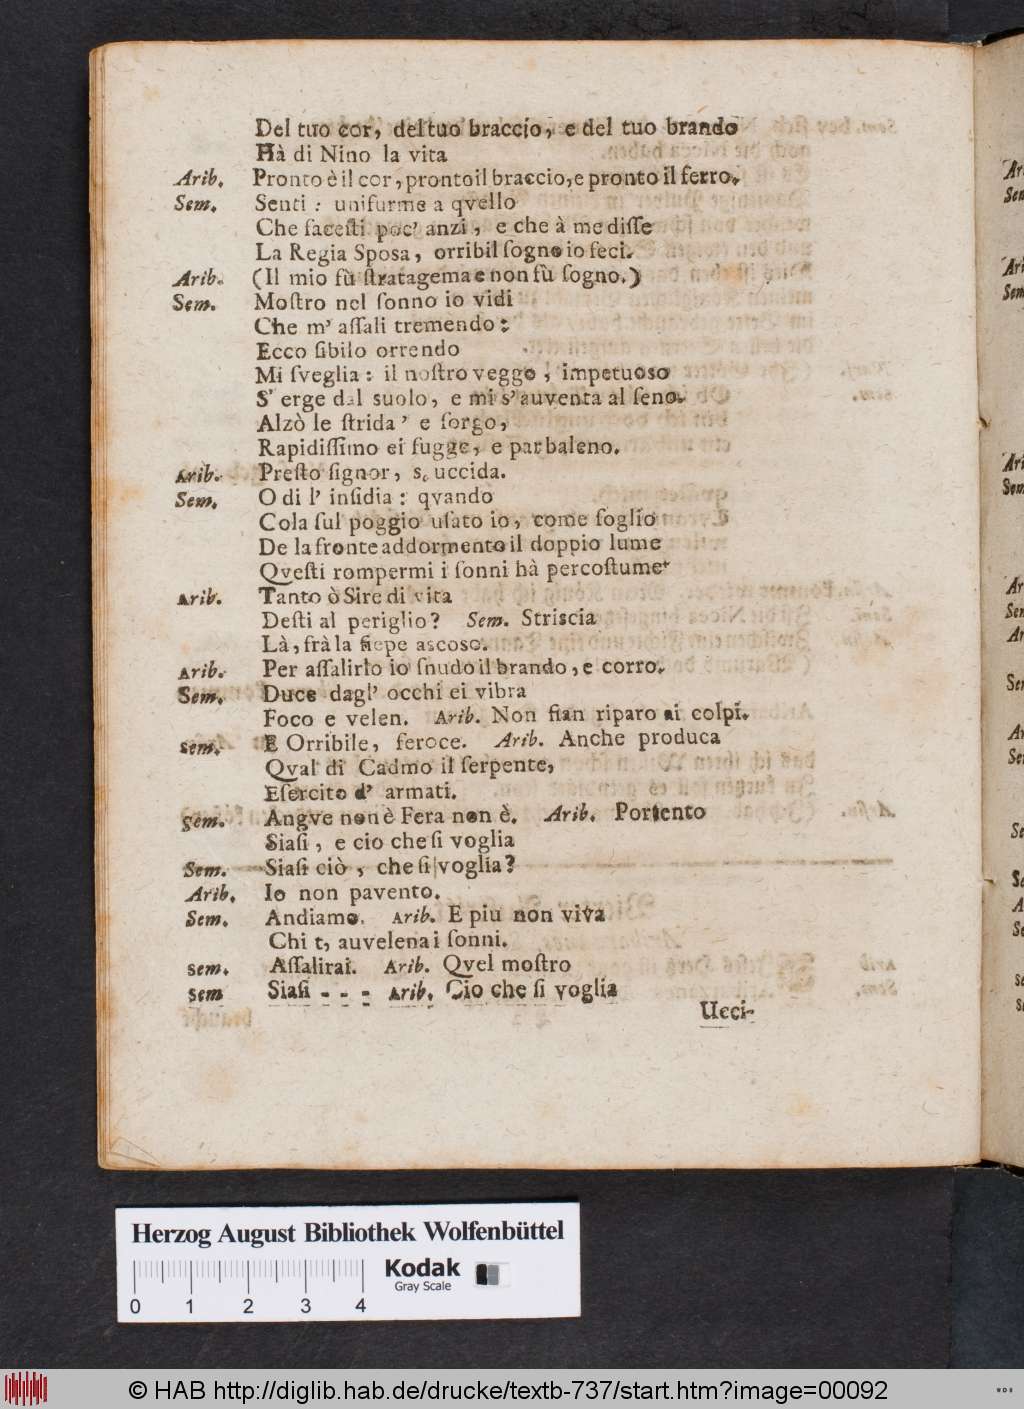 Del tuo cor, del tuo braccio, e del tuo brando
Hà di Nino la vita
Arib. Pronto è il cor, pronto il braccio, e pronto il ferro.
Sem. Senti: unifurme a qvello
Che facesti poc' anzi, e che à me disse
La Regia Sposa, orribil sogno io feci.
Arib. (Il mio fù stratagema e non fù sogno.)
Sem. Mostro nel sonno io vidi
Che m' assali tremendo:
Ecco sibilo orrendo
Mi sveglia: il nostro veggo, impetuoso
S' erge dal suolo, e mi s'auventa al seno.
Alzò le strida' e sorgo,
Rapidissimo ei fugge, e par baleno.
Arib. Presto signor, s, uccida.
Sem. O di l' insidia: qvando
Cola sul poggio usato io, come soglio
De la fronte addormento il doppio lume
Qvesti rompermi i sonni hà percostume
Arib. Tanto ò Sire di vita
Desti al periglio? Sem. Striscia
Là, frà la siepe ascoso.
Arib. Per assalirlo io snudo il brando, e corro.
Sem. Duce dagl' occhi ei vibra
Foco e velen. Arib. Non fian riparo ai colpi.
sem. E Orribile, feroce. Arib. Anche produca
Qval di Cadmo il serpente,
Esercito d' armati.
sem. Angve non è Fera non è. Arib. Portento
Siasi, e cio che si voglia
Sem. Siasi ciò, che si voglia?
Arib. Io non pavento.
Sem. Andiamo. Arib. E piu non viva
Chi t, auvelena i sonni.
sem. Assalirai. Arib. Qvel mostro
sem Siasi - - - Arib. Cio che si voglia
Ucci-
Herzog August Bibliothek Wolfenbüttel
Kodak
Gray Scale
0 1 2 3 4
© HAB http://diglib.hab.de/drucke/textb-737/start.htm?image=00092